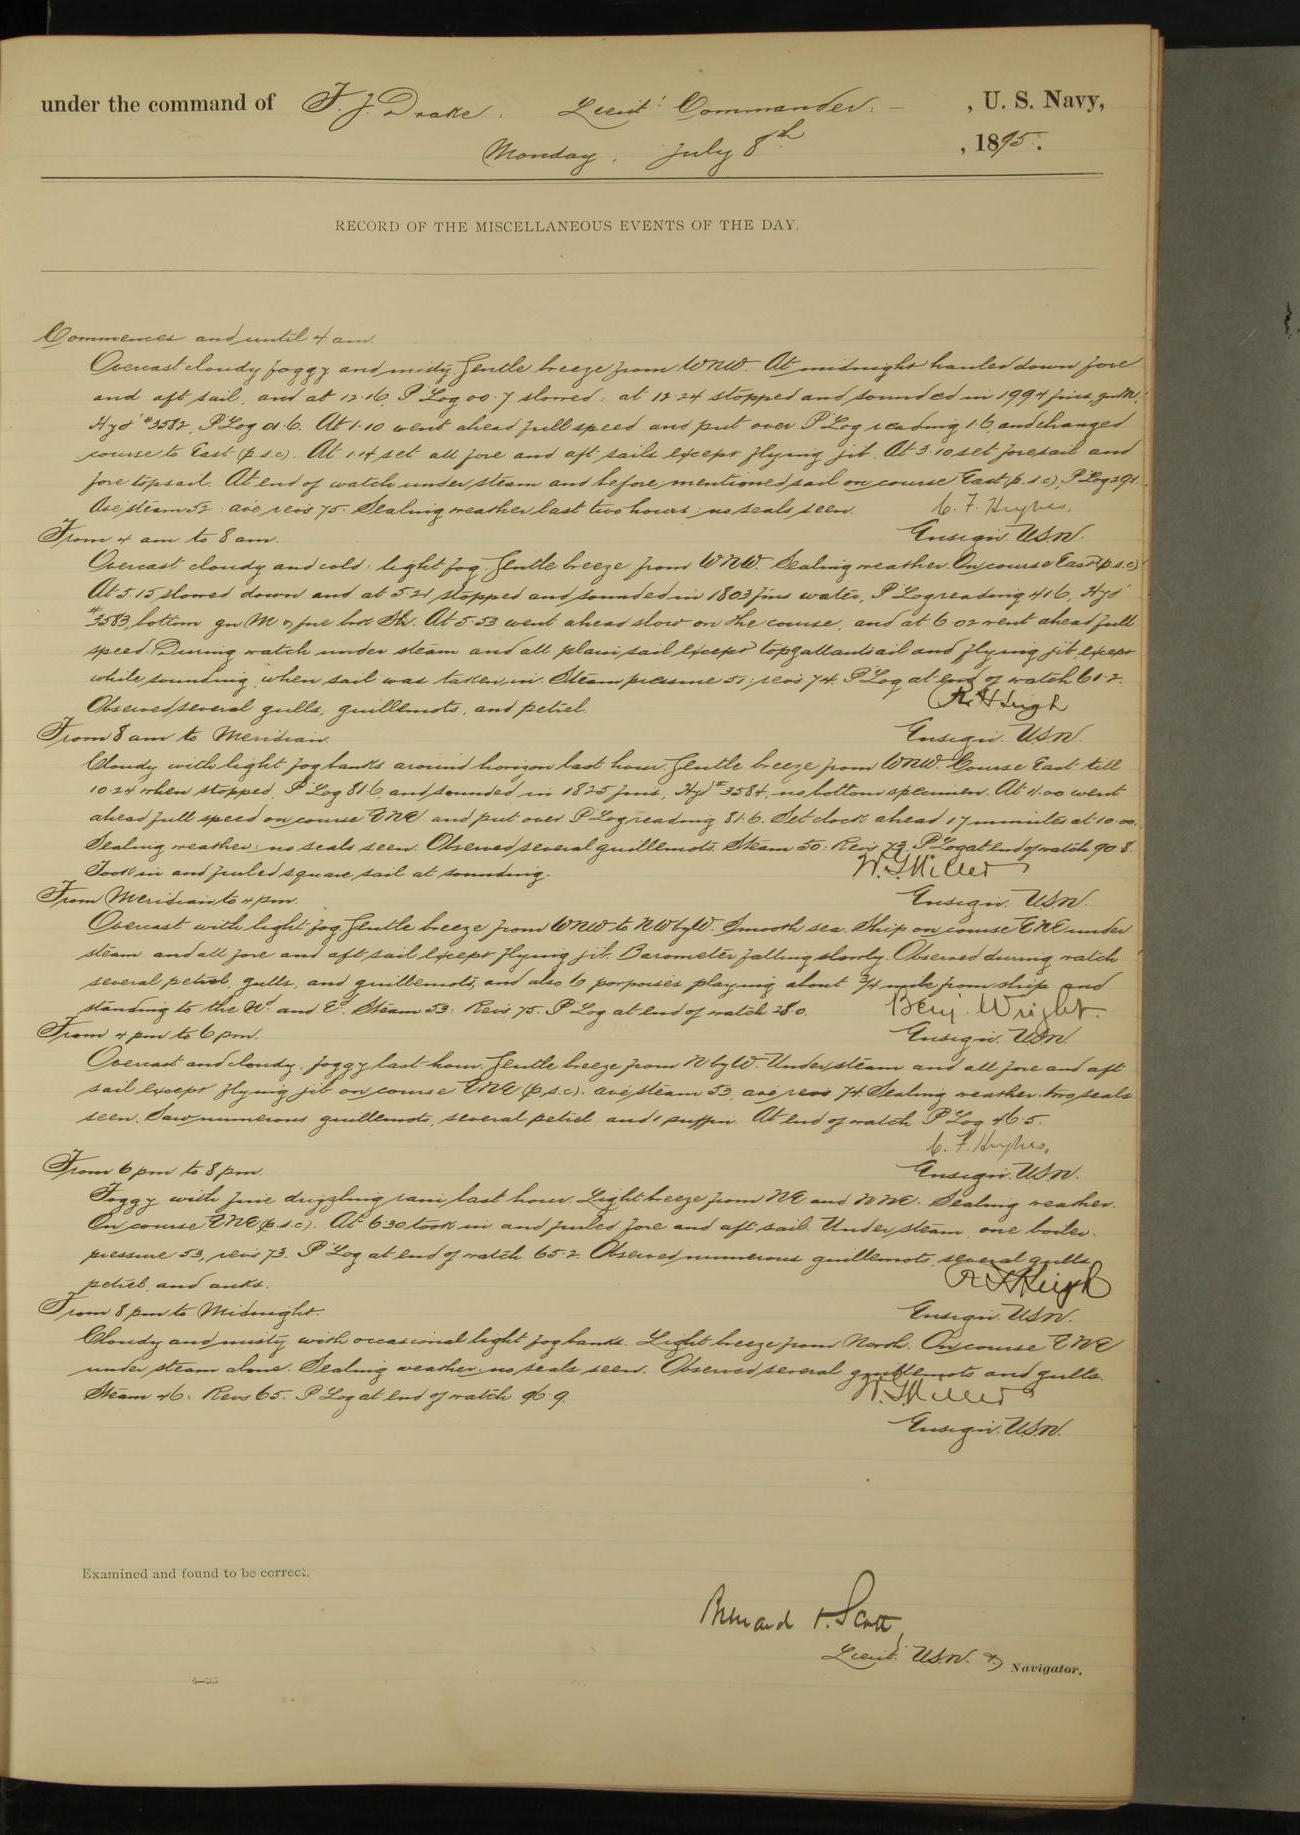 under the command of F. J. Drake, Lieut. Commander. , U. S. Navy,
Monday, July 8th , 1895.
RECORD OF THE MISCELLANEOUS EVENTS OF THE DAY.
Commences and until 4 am.
Overcast cloudy foggy and misty. Gentle breeze from WNW. At midnight hauled down fore
and aft sail, and at 12.16, P Log 00.7 slowed; at 12.24 stopped and sounded in 1994 fms, gn M,
Hyd # 3582, P Log 01.6. At 1.10 went ahead full speed and put over P Log reading 1.6, and changed
course to East (p.s.c). At 1.14 set all fore and aft sails except flying jib. At 3.10 set foresail and
fore topsail. At end of watch under steam and before mentioned sail on course East (p.s.c), P Log 29.
Ave steam 52: ave revs 75. Sealing weather last two hours: no seals seen.
C. F. Hughes,
Ensign. U.S.N.
From 4 am to 8 am.
Overcast cloudy and cold: light fog. Gentle breeze from WNW. Sealing weather. On course East (p.s.c)
At 5.15 slowed down and at 5.21 stopped and sounded in 1803 fms water, P Log reading 41.6, Hyd
# 3583, bottom gn M & fne brk Sh. At 5.53 went ahead slow on the course, and at 6.02 went ahead full
speed. During watch under steam and all plain sail except topgallantsail and flying jib except
while sounding, when sail was taken in. Steam pressure 51: revs 74. P Log at end of watch 61.2.
Observed several gulls, guillemots, and petrel.
R. H. Leigh
Ensign. U.S.N.
From 8 am to Meridian.
Cloudy with light fog banks around horizon last hour. Gentle breeze from WNW. Course East till
10.24 when stopped, P Log 81.6 and sounded in 1825 fms, Hyd # 3584, no bottom specimen. At 11.00 went
ahead full speed on course ENE and put over P Log reading 81.6. Set clock ahead 17 minutes at 10.00.
Sealing weather: no seals seen. Observed several guillemots. Steam 50: Revs 73. P Log at end of watch 90.8.
Took in and furled square sail at sounding.
W. G. Miller
Ensign. U.S.N.
From Meridian to 4 pm.
Overcast with light fog. Gentle breeze from WNW to NW by W. Smooth sea. Ship on course ENE under
steam and all fore and aft sail except flying jib. Barometer falling slowly. Observed during watch
several petrel, gulls, and guillemots, and also 6 porpoises playing about 3/4 mile from ship and
standing to the Nd and Ed. Steam 53: Revs 75. P Log at end of watch 28.0.
Benj. Wright.
Ensign. USN.
From 4 pm to 6 pm.
Overcast and cloudy, foggy last hour. Gentle breeze from N by W. Under steam and all fore and aft
sail except flying jib on course ENE (p.s.c). ave steam 53, ave revs 74. Sealing weather: two seals
seen. Saw numerous guillemots, several petrel and 1 puffin. At end of watch P Log 46.5.
C. F. Hughes,
Ensign. U.S.N.
From 6 pm to 8 pm.
Foggy with fine drizzling rain last hour. Light breeze from NE and NNE. Sealing weather.
On course ENE (p.s.c). At 6.30 took in and furled fore and aft sail. Under steam, one boiler.
pressure 53, revs 73. P Log at end of watch 65.2. Observed numerous guillemots, several gulls,
petrel, and auks.
R. H. Leigh
Ensign. U.S.N.
From 8 pm to Midnight.
Cloudy and misty with occasional light fog banks. Light breeze from North. On course ENE
under steam alone. Sealing weather: no seals seen. Observed several guillemots and gulls.
Steam 46: Revs 65. P Log at end of watch 96.9.
W. G. Miller
Ensign. U.S.N.
Examined and found to be correct.
Bernard O. Scott,
Lieut. U.S.N. & Navigator.